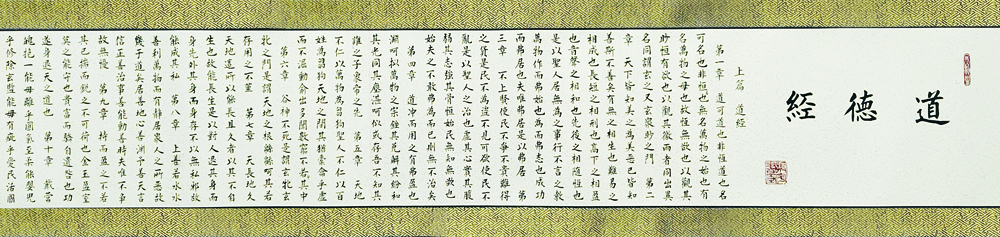 道德經
上篇 道經
第一章 道可道也非恒道也名
可名也非恒名也無名萬物之始也有
名萬物之母也故恒無欲也以觀其
眇恒有欲也以觀其所徼兩者同出異
名同謂玄之又玄衆眇之門 第二
章 天下皆知美之為美惡已皆知
善斯不善矣有無之相生也難易之
相成也長短之相刑也高下之相盈
也音聲之相和也先後之相隨恒也
是以聖人居無為之事行不言之教
萬物作而弗始也為而弗志也成功
而弗居也夫唯弗居是以弗去 第
三章 不上賢使民不爭不貴難得
之貨使民不為盜不見可欲使民不
亂是以聖人之治也虛其心實其腹
弱其志強其骨恒使民無知無欲也
使夫知不敢弗為而已則無不治矣
第四章 道沖而用之有弗盈也
淵呵似萬物之宗銼其兌解其紛和
其光同其塵湛呵似或存吾不知其
誰之子象帝之先 第五章 天地
不仁以萬物為芻狗聖人不仁以百
姓為芻狗天地之間其猶橐籥乎虛
而不淈動而愈出多聞數窮不若守於中
第六章 谷神不死是謂玄牝玄
牝之門是謂天地之根緜緜呵其若
存用之不堇 第七章 天長地久
天地之所以能長且久者以其不自
生也故能長生是以聖人退其身而
身先外其身而身存不以其無私邪故
能成其私 第八章 上善若水水
善利萬物而有靜居衆人之所惡故
幾於道矣居善地心善淵予善天言
善信正善治事善能動善時夫唯不爭
故無尤 第九章 持而盈之不若
其已揣而銳之不可長葆也金玉盈室
莫之能守也貴富而驕自遺咎也功
遂身退天之道也 第十章 戴營
魄抱一能毋離乎摶氣至柔能嬰兒
乎修除玄鑒能毋有疵乎愛民治國